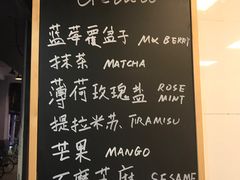 蓝莓覆盆子 MIX BERRY
抹茶 MATCHA
薄荷玫瑰盐 ROSE MINT
提拉米苏 TIRAMISU
芒果 MANGO
芝麻 SESAME